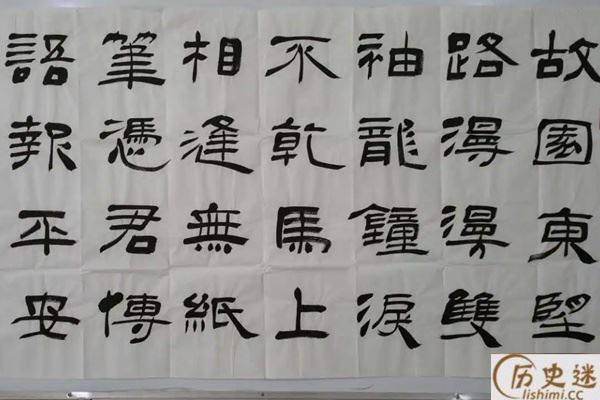 故園東望
路漫漫雙
袖龍鐘淚
不乾馬上
相逢無紙
筆憑君傳
語報平安
历史迷
lishimi.cc